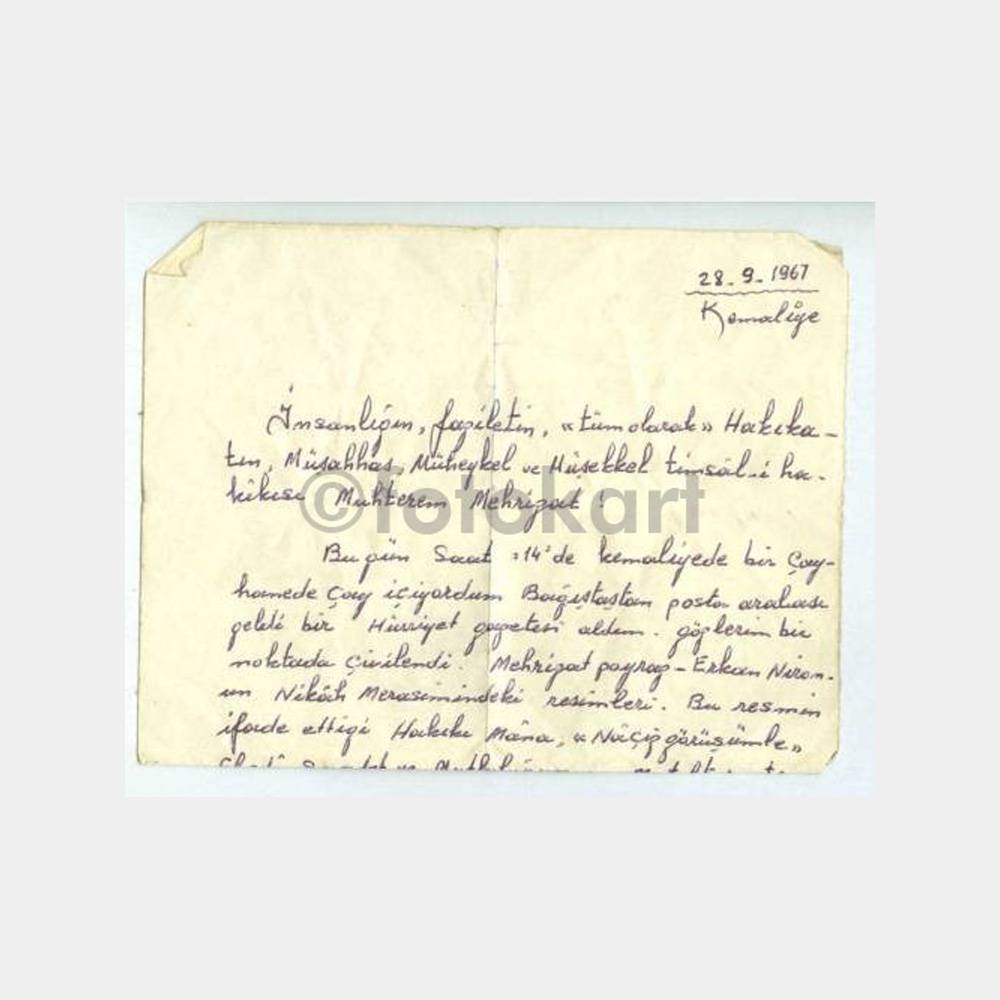 28-9-1967
Kemaliye
İnsanlığın, faziletin, «tümolarak» Hakika-
tın, Müşahhas, Müheykel ve Müşekkel timsâl-i ha-
kikisi Muhterem Mehrizat.
©fotokart
Bugün Saat :14'de kemaliyede bir Çay-
hanede Çay içiyordum Bağıştaştan posta arabası
geldi bir Hürriyet gazetesi aldım. gözlerim bir
noktada Çivilendi. Mehrizat poyraz-Erkan Niron-
un Nikâh Merasimindeki resimleri. Bu resmin
ifade ettiği Hakiki Mâna, «Nâçiz görüşümle»